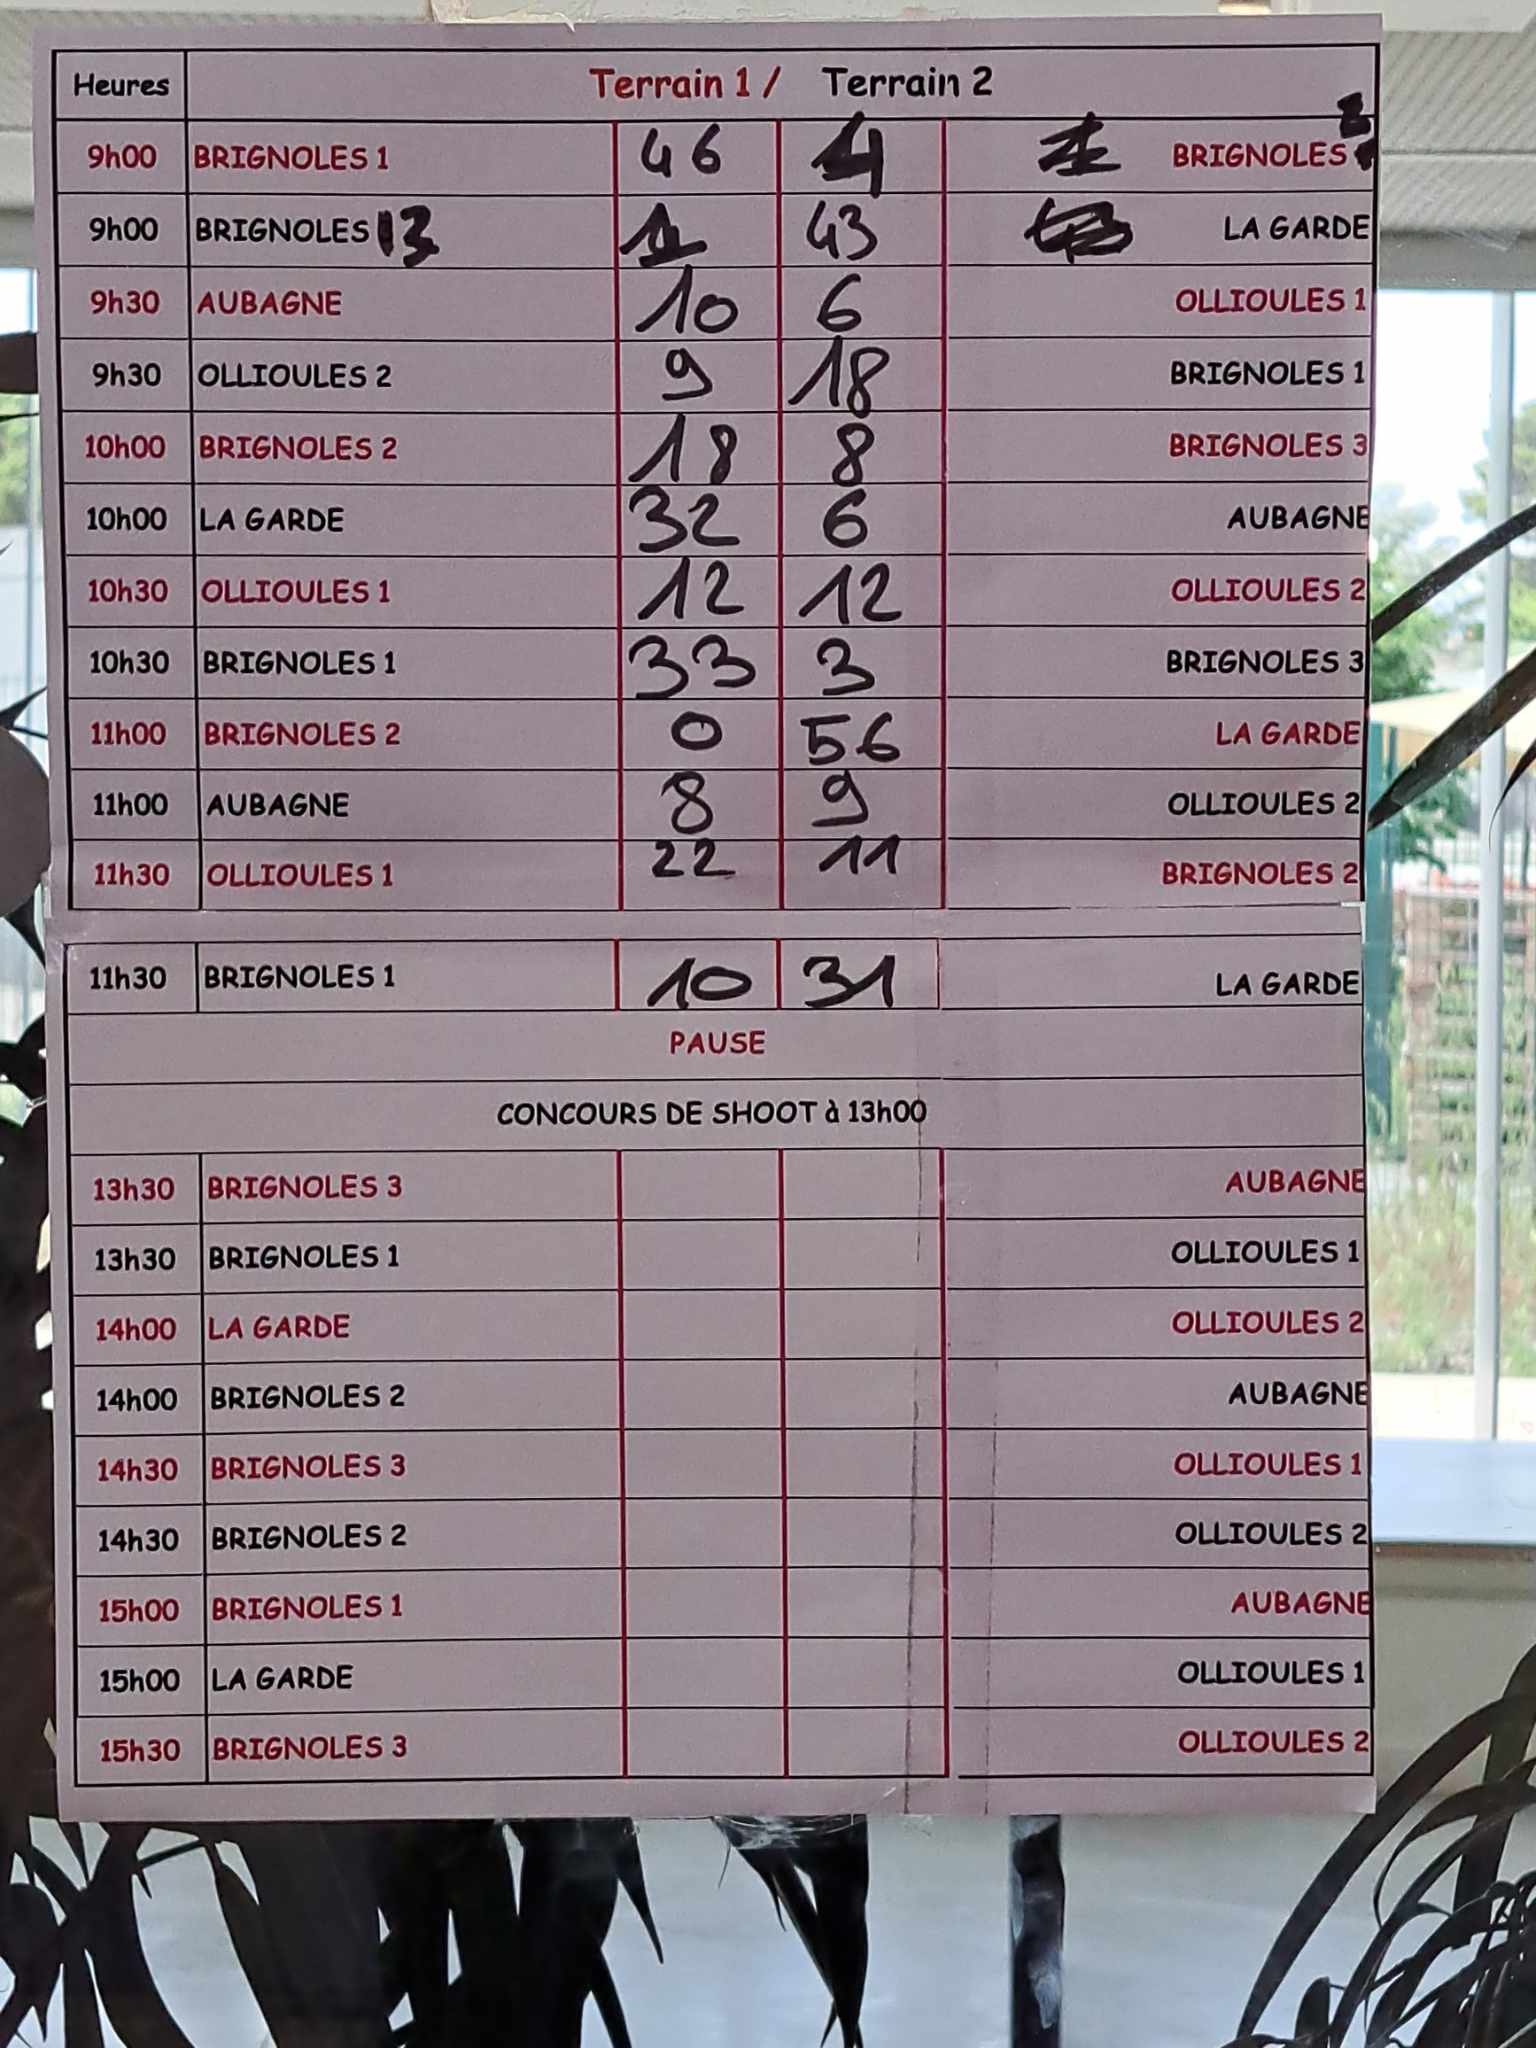 Heures Terrain 1 / Terrain 2
9h00 BRIGNOLES 1 46 4 BRIGNOLES 2
9h00 BRIGNOLES 3 43 LA GARDE
9h30 AUBAGNE 10 6 OLLIOULES 1
9h30 OLLIOULES 2 9 18 BRIGNOLES 1
10h00 BRIGNOLES 2 18 8 BRIGNOLES 3
10h00 LA GARDE 32 6 AUBAGNE
10h30 OLLIOULES 1 12 12 OLLIOULES 2
10h30 BRIGNOLES 1 33 3 BRIGNOLES 3
11h00 BRIGNOLES 2 0 56 LA GARDE
11h00 AUBAGNE 8 9 OLLIOULES 2
11h30 OLLIOULES 1 22 11 BRIGNOLES 2
11h30 BRIGNOLES 1 10 31 LA GARDE
PAUSE
CONCOURS DE SHOOT à 13h00
13h30 BRIGNOLES 3 AUBAGNE
13h30 BRIGNOLES 1 OLLIOULES 1
14h00 LA GARDE OLLIOULES 2
14h00 BRIGNOLES 2 AUBAGNE
14h30 BRIGNOLES 3 OLLIOULES 1
14h30 BRIGNOLES 2 OLLIOULES 2
15h00 BRIGNOLES 1 AUBAGNE
15h00 LA GARDE OLLIOULES 1
15h30 BRIGNOLES 3 OLLIOULES 2